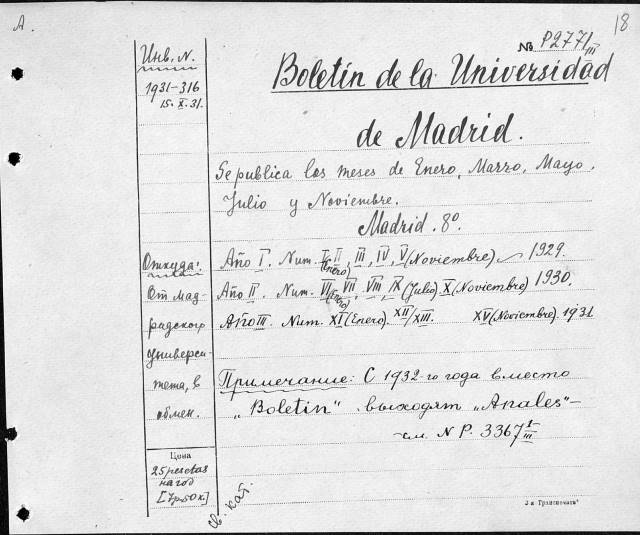 A.
18
№ P2771/III
Boletín de la Universidad
de Madrid.
Se publica los meses de Enero, Marzo, Mayo,
Julio y Noviembre.
Madrid. 8º.
Año I. Num. I (Enero) II, III, IV, V (Noviembre) 1929.
Año II. Num. VI (Enero) VII, VIII, IX (Julio) X (Noviembre) 1930.
Año III. Num. XI (Enero). XII/XIII. XV (Noviembre). 1931
Примечание: С 1932-го года вместо
"Boletin" выходят "Anales" –
см. N P. 3367 I/III
Инв. N.
1931-316
15.X.31.
Откуда:
От Мад-
ридского
универси-
тета, в
обмен.
Цена
25 pesetas
на год
[7р.50к.]
св. кат.
3-я Транспечать